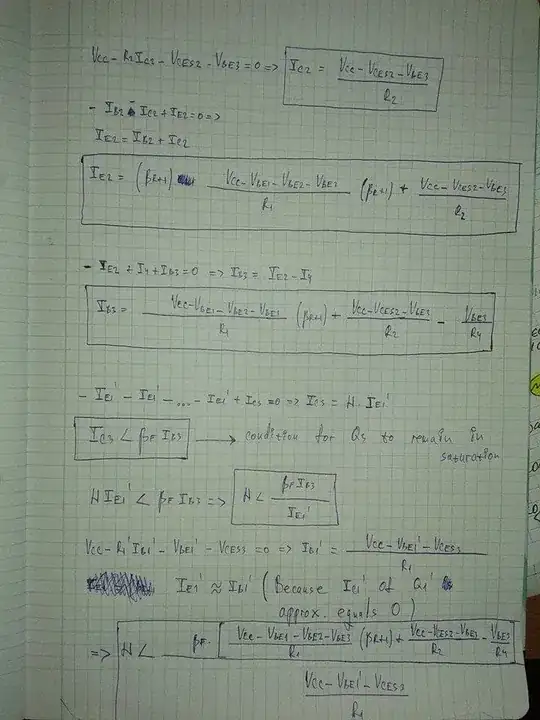 Vcc - R2 Ic2 - VCES2 - VBE3 = 0 => Ic2 = (Vcc - VCES2 - VBE3) / R2
- IB2 - Ic2 + IE2 = 0 =>
IE2 = IB2 + Ic2
IE2 = (βR+1) (Vcc - VBE1 - VBE2 - VBE3) / R1 (βR+1) + (Vcc - VCES2 - VBE3) / R2
- IE2 + I4 + IB3 = 0 => IB3 = IE2 - I4
IB3 = (Vcc - VBE1 - VBE2 - VBE3) / R1 (βR+1) + (Vcc - VCES2 - VBE3) / R2 - VBE3 / R4
- IE1' - IE1' - ... - IE1' + Ic3 = 0 => Ic3 = N · IE1'
Ic3 < βF IB3 → condition for Q3 to remain in
saturation
N IE1' < βF IB3 => N < βF IB3 / IE1'
Vcc - R1' IB1' - VBE1' - VCES3 = 0 => IB1' = (Vcc - VBE1' - VCES3) / R1
IE1' ≈ IB1' (Because Ic1' of Q1'
approx. equals 0)
=> N < βF · [(Vcc - VBE1 - VBE2 - VBE3) / R1 (βR+1) + (Vcc - VCES2 - VBE3) / R2 - VBE3 / R4]
(Vcc - VBE1' - VCES3) / R1